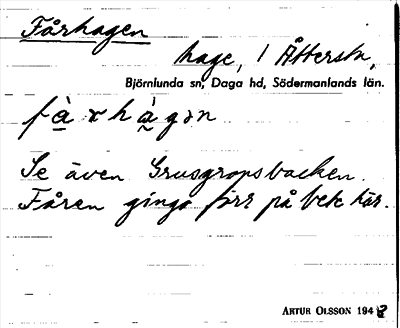 Fårhagen
hage, 1 Åttersta,
Björnlunda sn, Daga hd, Södermanlands län.
Se även Grusgropsbacken.
Fåren gingo förr på bete här.
ARTUR OLSSON 1948